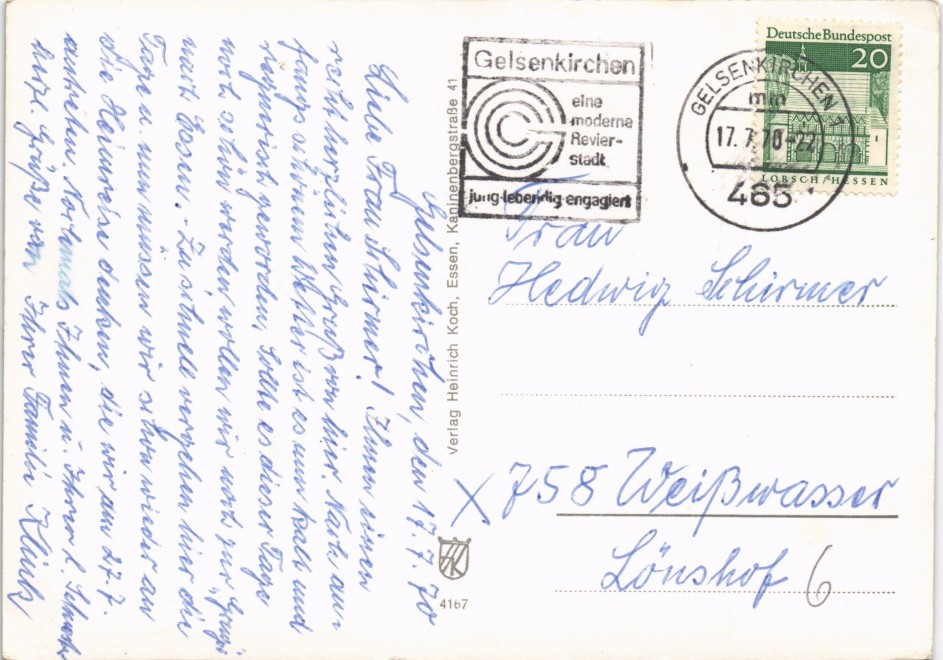 Gelsenkirchen, den 17. 7. 70
Liebe Frau Schirmer! Ihnen einen
recht herzlichen Gruß von hier. Nach an-
fangs schönem Wetter ist es nun kalt und
regnerisch geworden, sollte es dieser Tage
noch schön werden wollen wir noch zur „Gruga“
nach Essen. Zu schnell vergehen hier die
Tage u. nun müssen wir schon wieder an
die Heimreise denken, die wir am 27. 7.
antreten. Nochmals Ihnen u. Ihrer l. Schwester
herzl. Grüße von Ihrer Familie
Verlag Heinrich Koch, Essen, Kaninenbergstraße 41
4167
Gelsenkirchen
eine
moderne
Revier-
stadt
jung·lebendig·engagiert
GELSENKIRCHEN
mm
17. 7. 70-22
465
Deutsche Bundespost
20
LORSCH/HESSEN
Frau
Hedwig Schirmer
X 758 Weißwasser
Lönshof 6